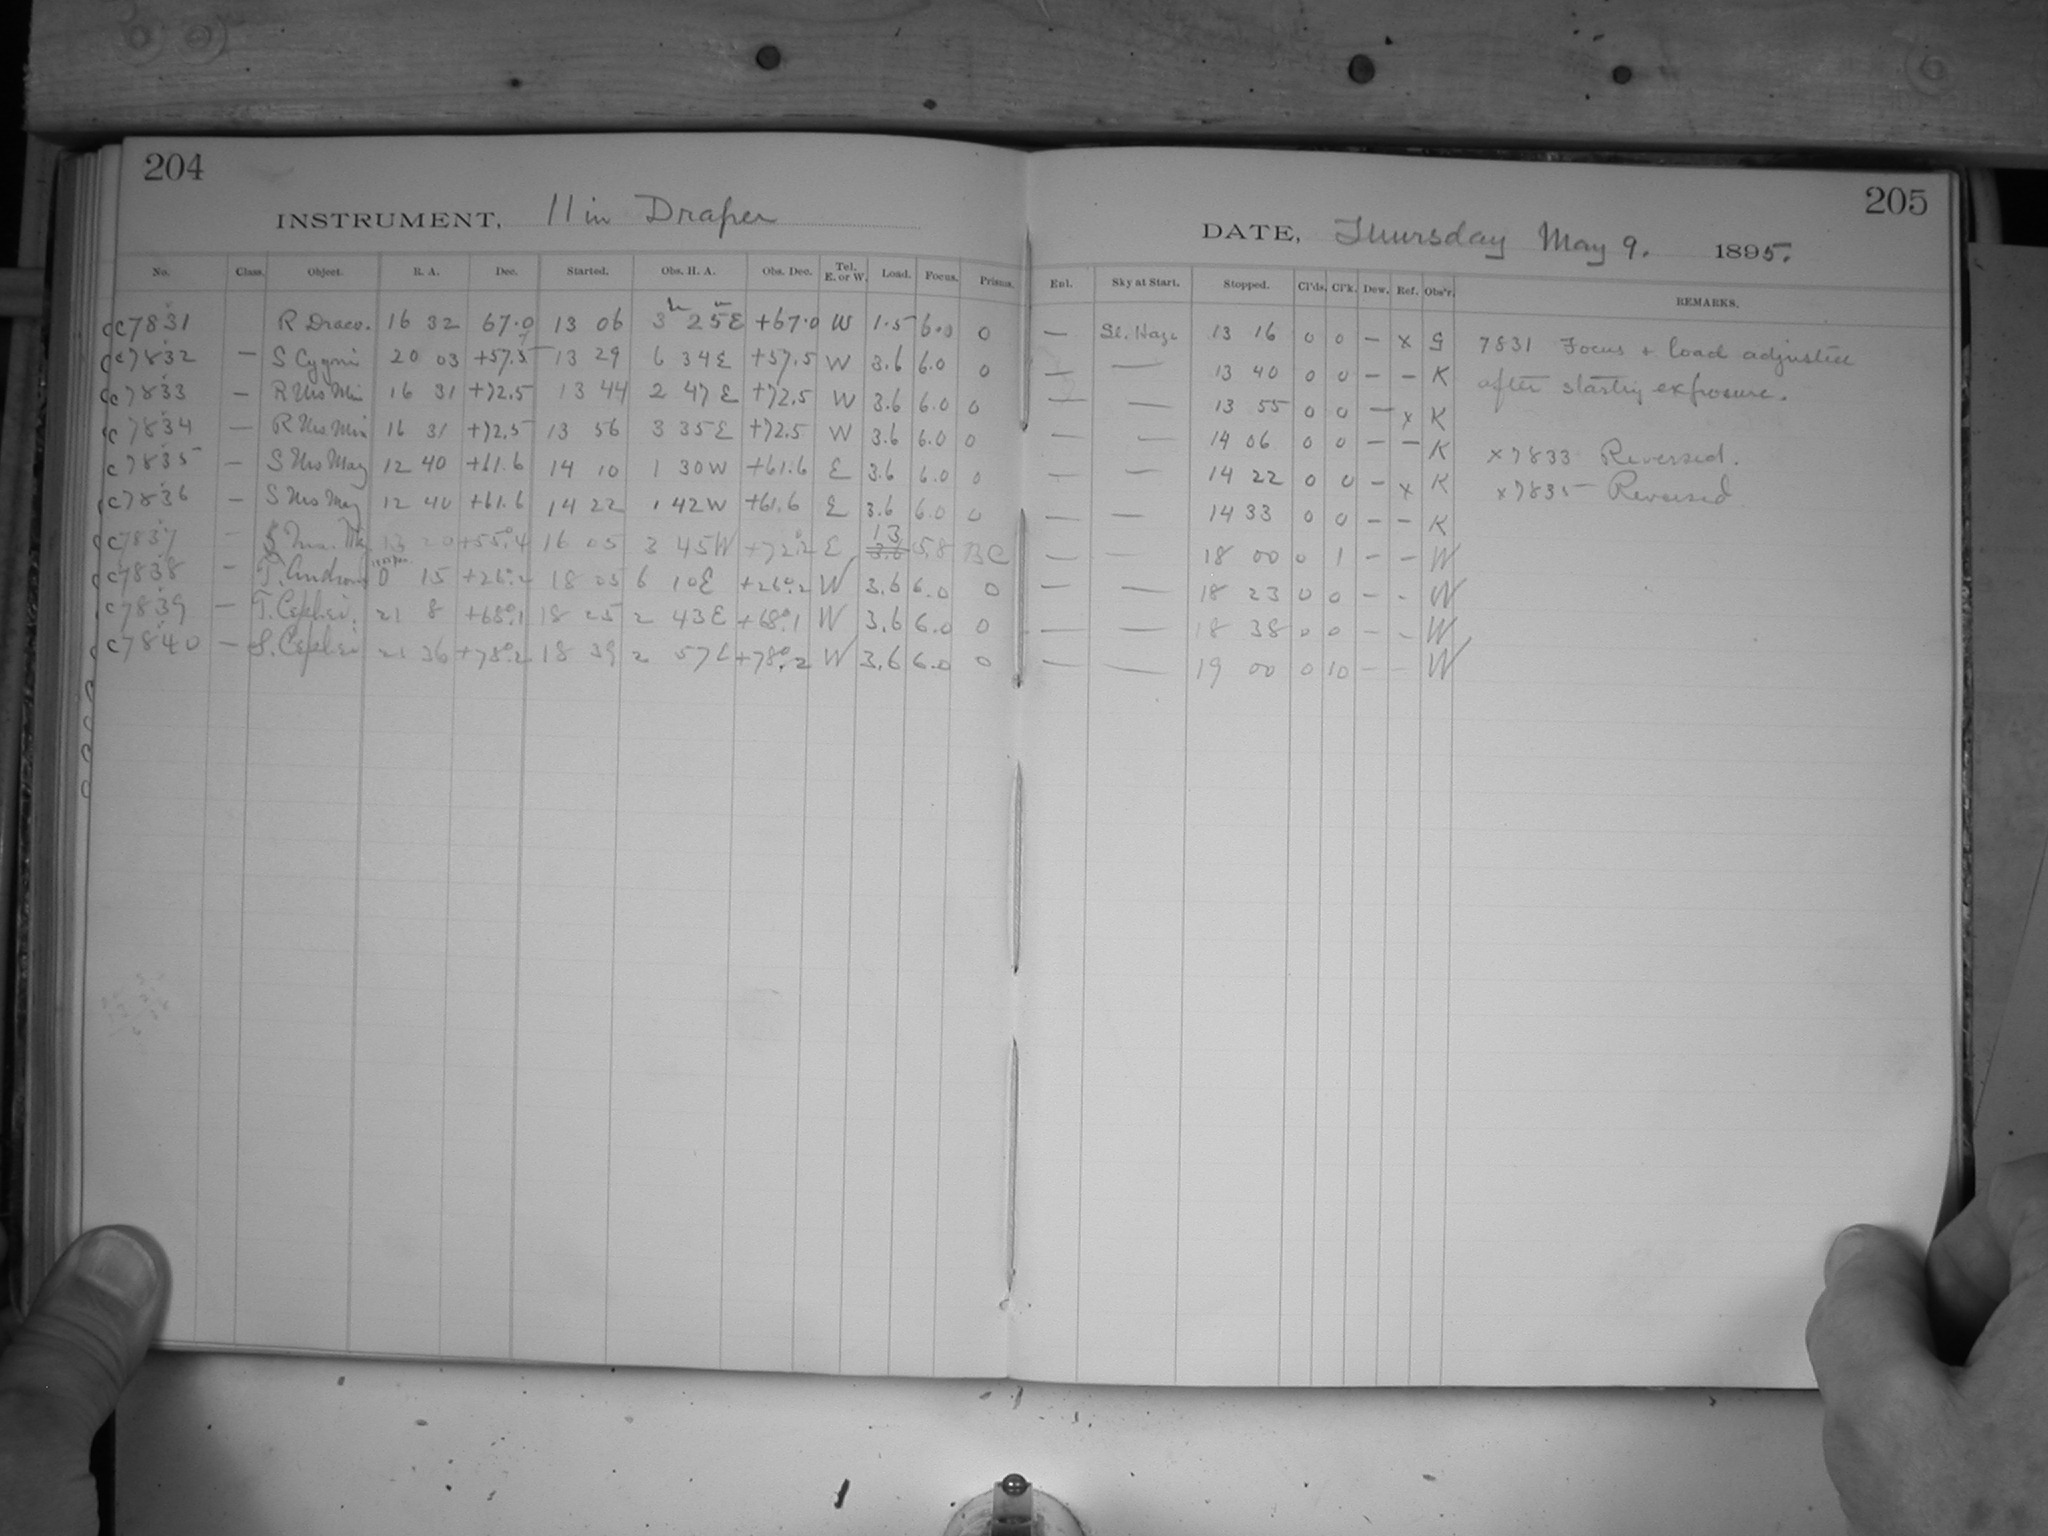 204
INSTRUMENT, 11 in Draper
No. Class. Object. R. A. Dec. Started. Obs. H. A. Obs. Dec. Tel. E. or W. Load. Focus. Prisms.
c7831 R Draco. 16 32 67.0 13 06 3h 25m E +67.0 W 1.5 6.0 0
c7832 — S Cygni 20 03 +57.5 13 29 6 34E +57.5 W 3.6 6.0 0
c7833 — R Urs Min 16 31 +72.5 13 44 2 47 E +72.5 W 3.6 6.0 0
c7834 — R Urs Min 16 31 +72.5 13 56 3 35E +72.5 W 3.6 6.0 0
c7835 — S Urs Maj 12 40 +61.6 14 10 1 30W +61.6 E 3.6 6.0 0
c7836 — S Urs Maj 12 40 +61.6 14 22 1 42W +61.6 E 3.6 6.0 0
c7837 — 13 20 +55°.4 16 05 3 45W +72°.2 E 13 3.6 5.8 BC
c7838 — T. Androm 0 15 +26°.2 18 05 6 10E +26°.2 W 3.6 6.0 0
c7839 — T. Cephei. 21 8 +68°.1 18 25 2 43E +68°.1 W 3.6 6.0 0
c7840 — S. Cephei 21 36 +78°.2 18 39 2 57E +78°.2 W 3.6 6.0 0
205
DATE, Thursday May 9. 1895.
Enl. Sky at Start. Stopped. Cl'ds. Cl'k. Dew. Ref. Obs'r. REMARKS.
— Sl. Haze 13 16 0 0 — x G 7831 Focus + load adjusted
— — 13 40 0 0 — — K after starting exposure.
— — 13 55 0 0 — x K
— — 14 06 0 0 — — K x7833 Reversed.
— — 14 22 0 0 — x K x7835 Reversed
— — 14 33 0 0 — — K
— — 18 00 0 1 — — W
— — 18 23 0 0 — — W
— — 18 38 0 0 — — W
— — 19 00 0 10 — — W